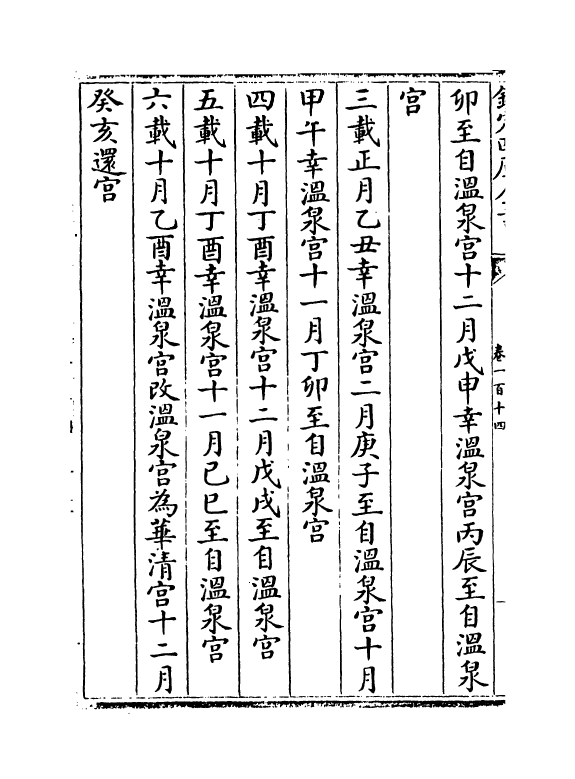 卯至自溫泉宮十二月戊申幸溫泉宮丙辰至自溫泉
宮
三載正月乙丑幸溫泉宮二月庚子至自溫泉宮十月
甲午幸溫泉宮十一月丁卯至自溫泉宮
四載十月丁酉幸溫泉宮十二月戊戌至自溫泉宮
五載十月丁酉幸溫泉宮十一月己巳至自溫泉宮
六載十月乙酉幸溫泉宮改溫泉宮為華清宮十二月
癸亥還宮
卷一百十四